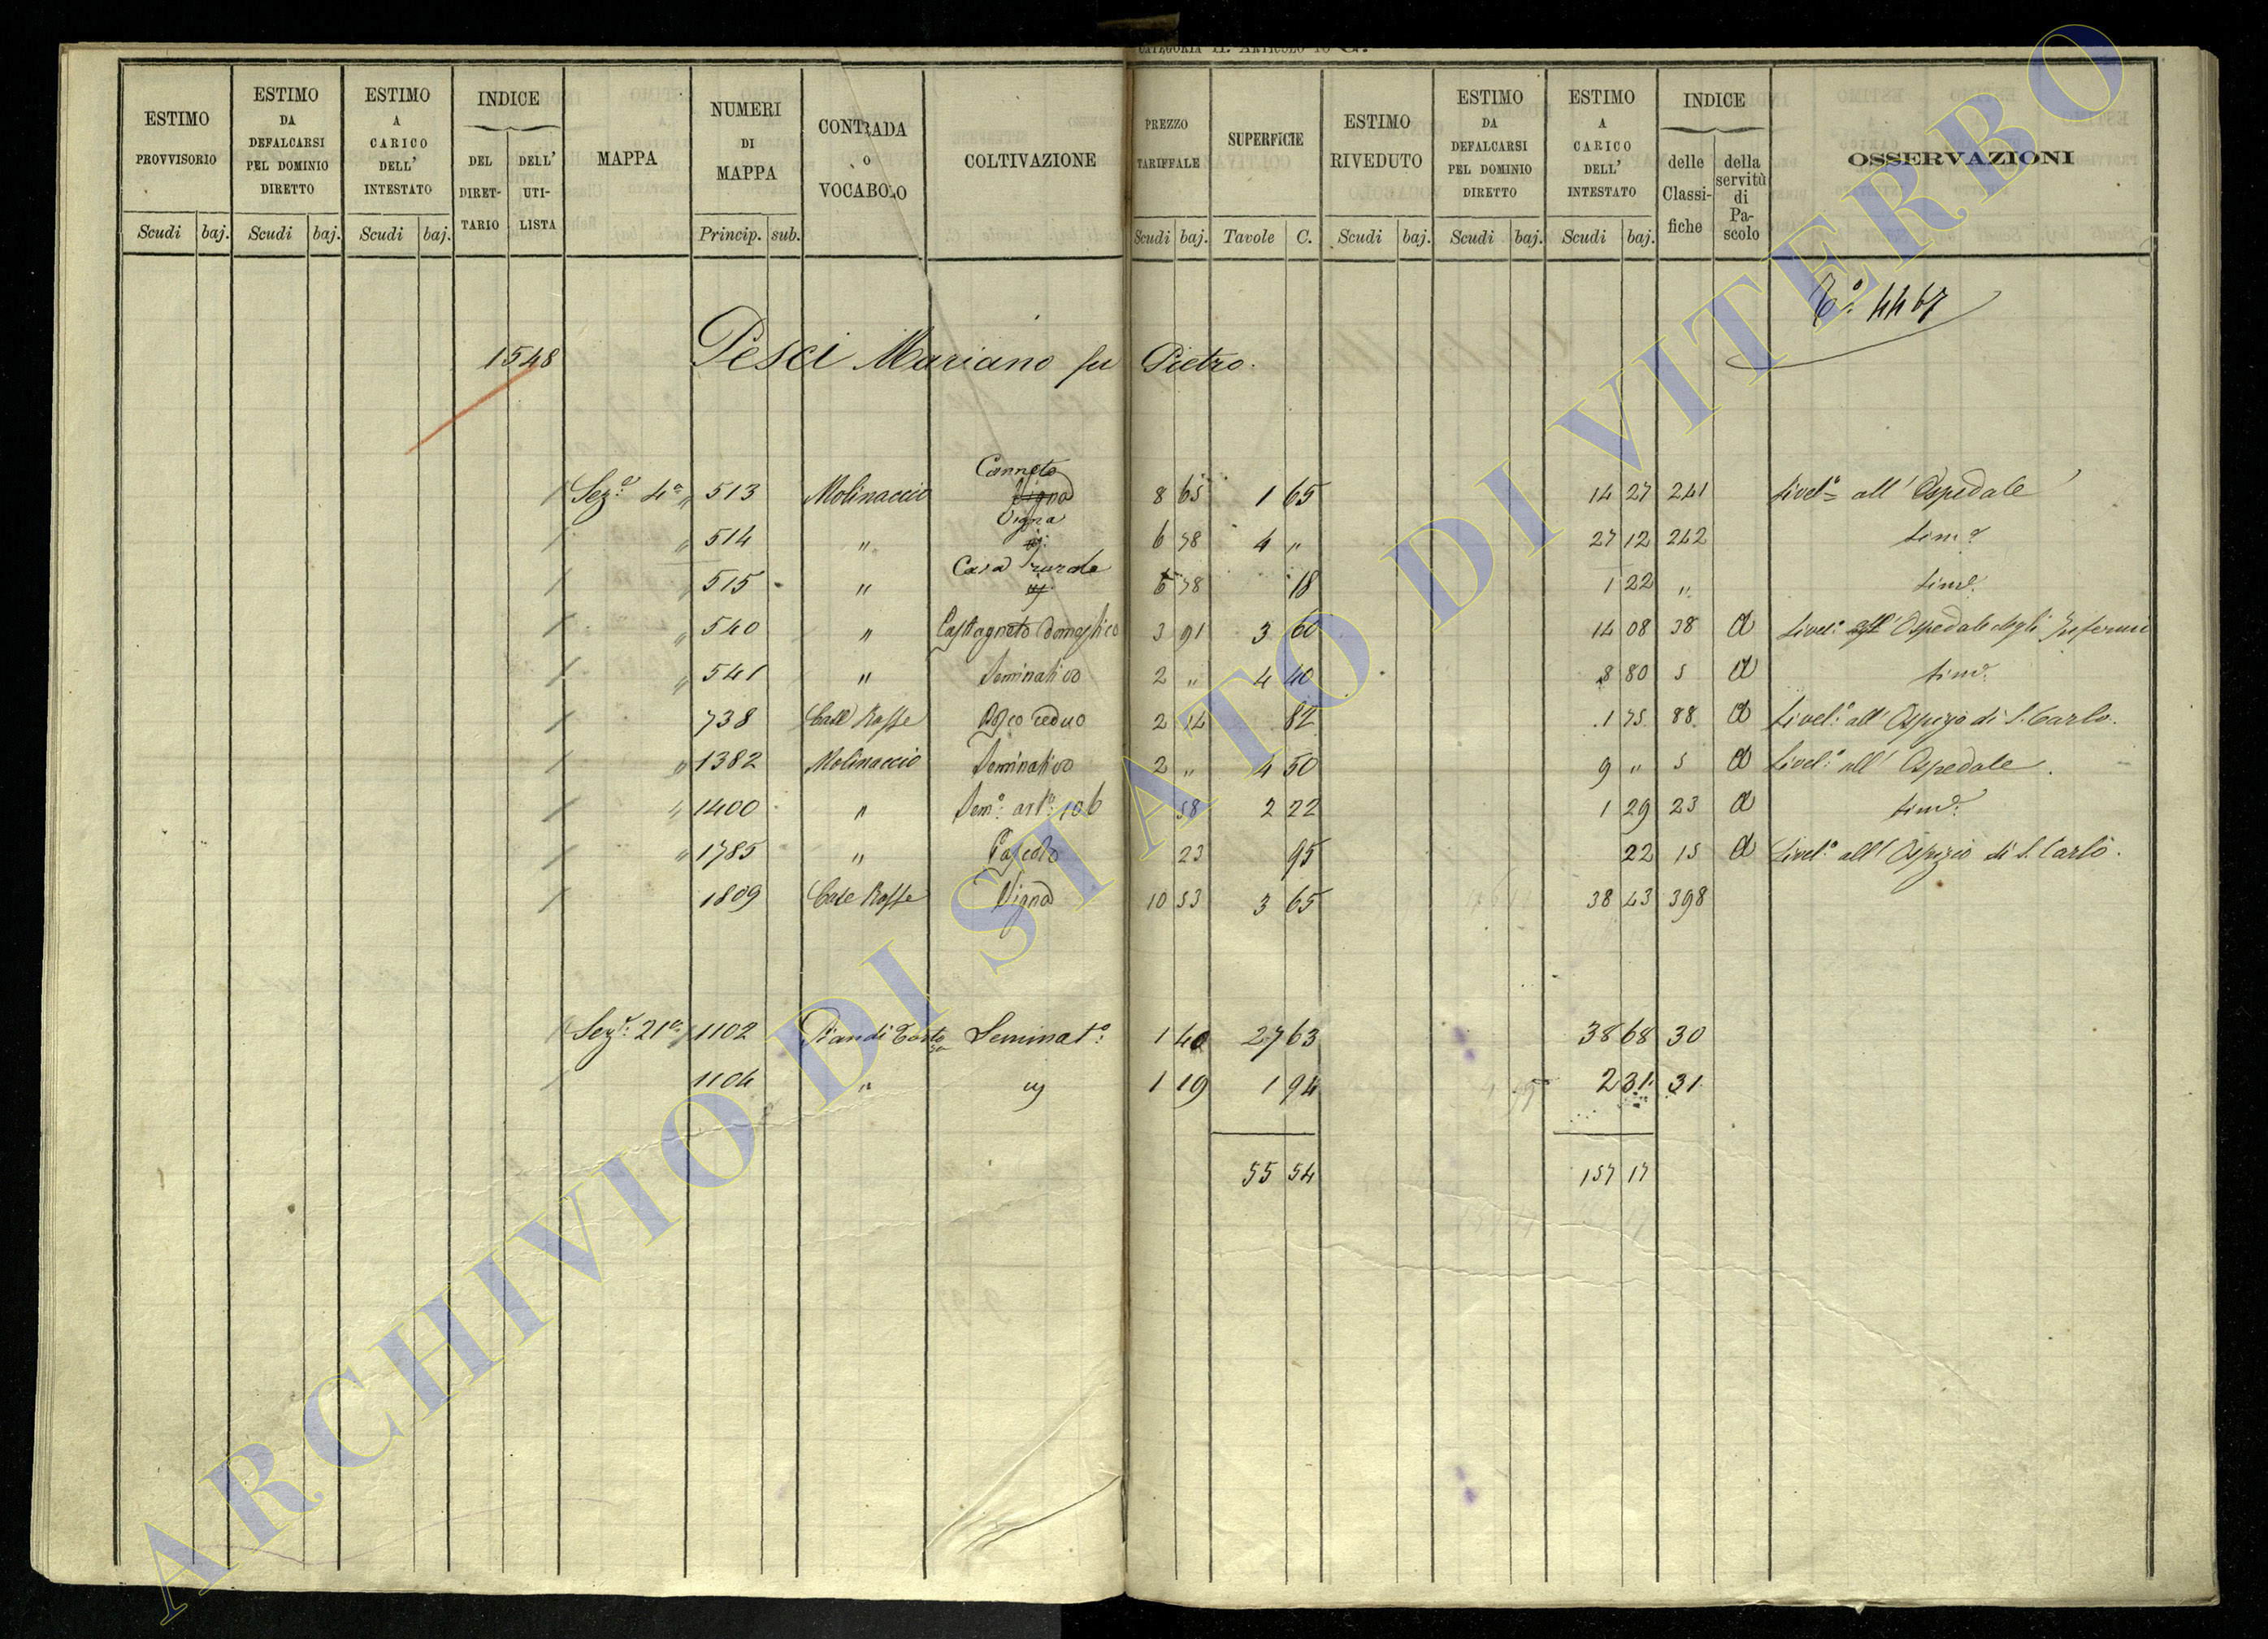 CATEGORIA II. ARTICOLO 16 G.
ESTIMO PROVVISORIO Scudi baj.
ESTIMO DA DEFALCARSI PEL DOMINIO DIRETTO Scudi baj.
ESTIMO A CARICO DELL' INTESTATO Scudi baj.
INDICE DEL DIRETTARIO DELL' UTILISTA
MAPPA
NUMERI DI MAPPA Princip. sub.
CONTRADA O VOCABOLO
COLTIVAZIONE
PREZZO TARIFFALE Scudi baj.
SUPERFICIE Tavole C.
ESTIMO RIVEDUTO Scudi baj.
ESTIMO DA DEFALCARSI PEL DOMINIO DIRETTO Scudi baj.
ESTIMO A CARICO DELL' INTESTATO Scudi baj.
INDICE delle Classifiche della servitù di Pascolo
OSSERVAZIONI
4467
1548 Pesci Mariano fu Pietro.
Canneto
Sez.e 4a " 513 Molinaccio Vigna 8 65 1 65 14 27 241 Livel.o all' Ospedale
Vigna
" 514 " 6 78 4 " 27 12 242 sim.e
Casa rurale
" 515 " 6 78 18 1 22 " sim.e
" 540 " Castagneto domestico 3 91 3 60 14 08 38 a Livel.o all' Ospedale degli Infermi
" 541 " Seminativo 2 " 4 40 8 80 5 a sim.e
738 Case Rosse Bosco ceduo 2 14 82 1 75 88 a Livel.o all' Ospizio di S. Carlo.
" 1382 Molinaccio Seminativo 2 " 4 50 9 " 5 a Livel.o all' Ospedale.
" 1400 " Sem.o art.o 106 58 2 22 1 29 23 a sim.e
" 1785 " Pascolo 23 95 22 15 a Livel.o all' Ospizio di S. Carlo.
1809 Case Rosse Vigna 10 53 3 65 38 43 398
Sez.e 21a 1102 Pian di Seminat.o 1 40 27 63 38 68 30
1104 " 1 19 1 94 2 31 31
55 54 157 17
ARCHIVIO DI STATO DI VITERBO